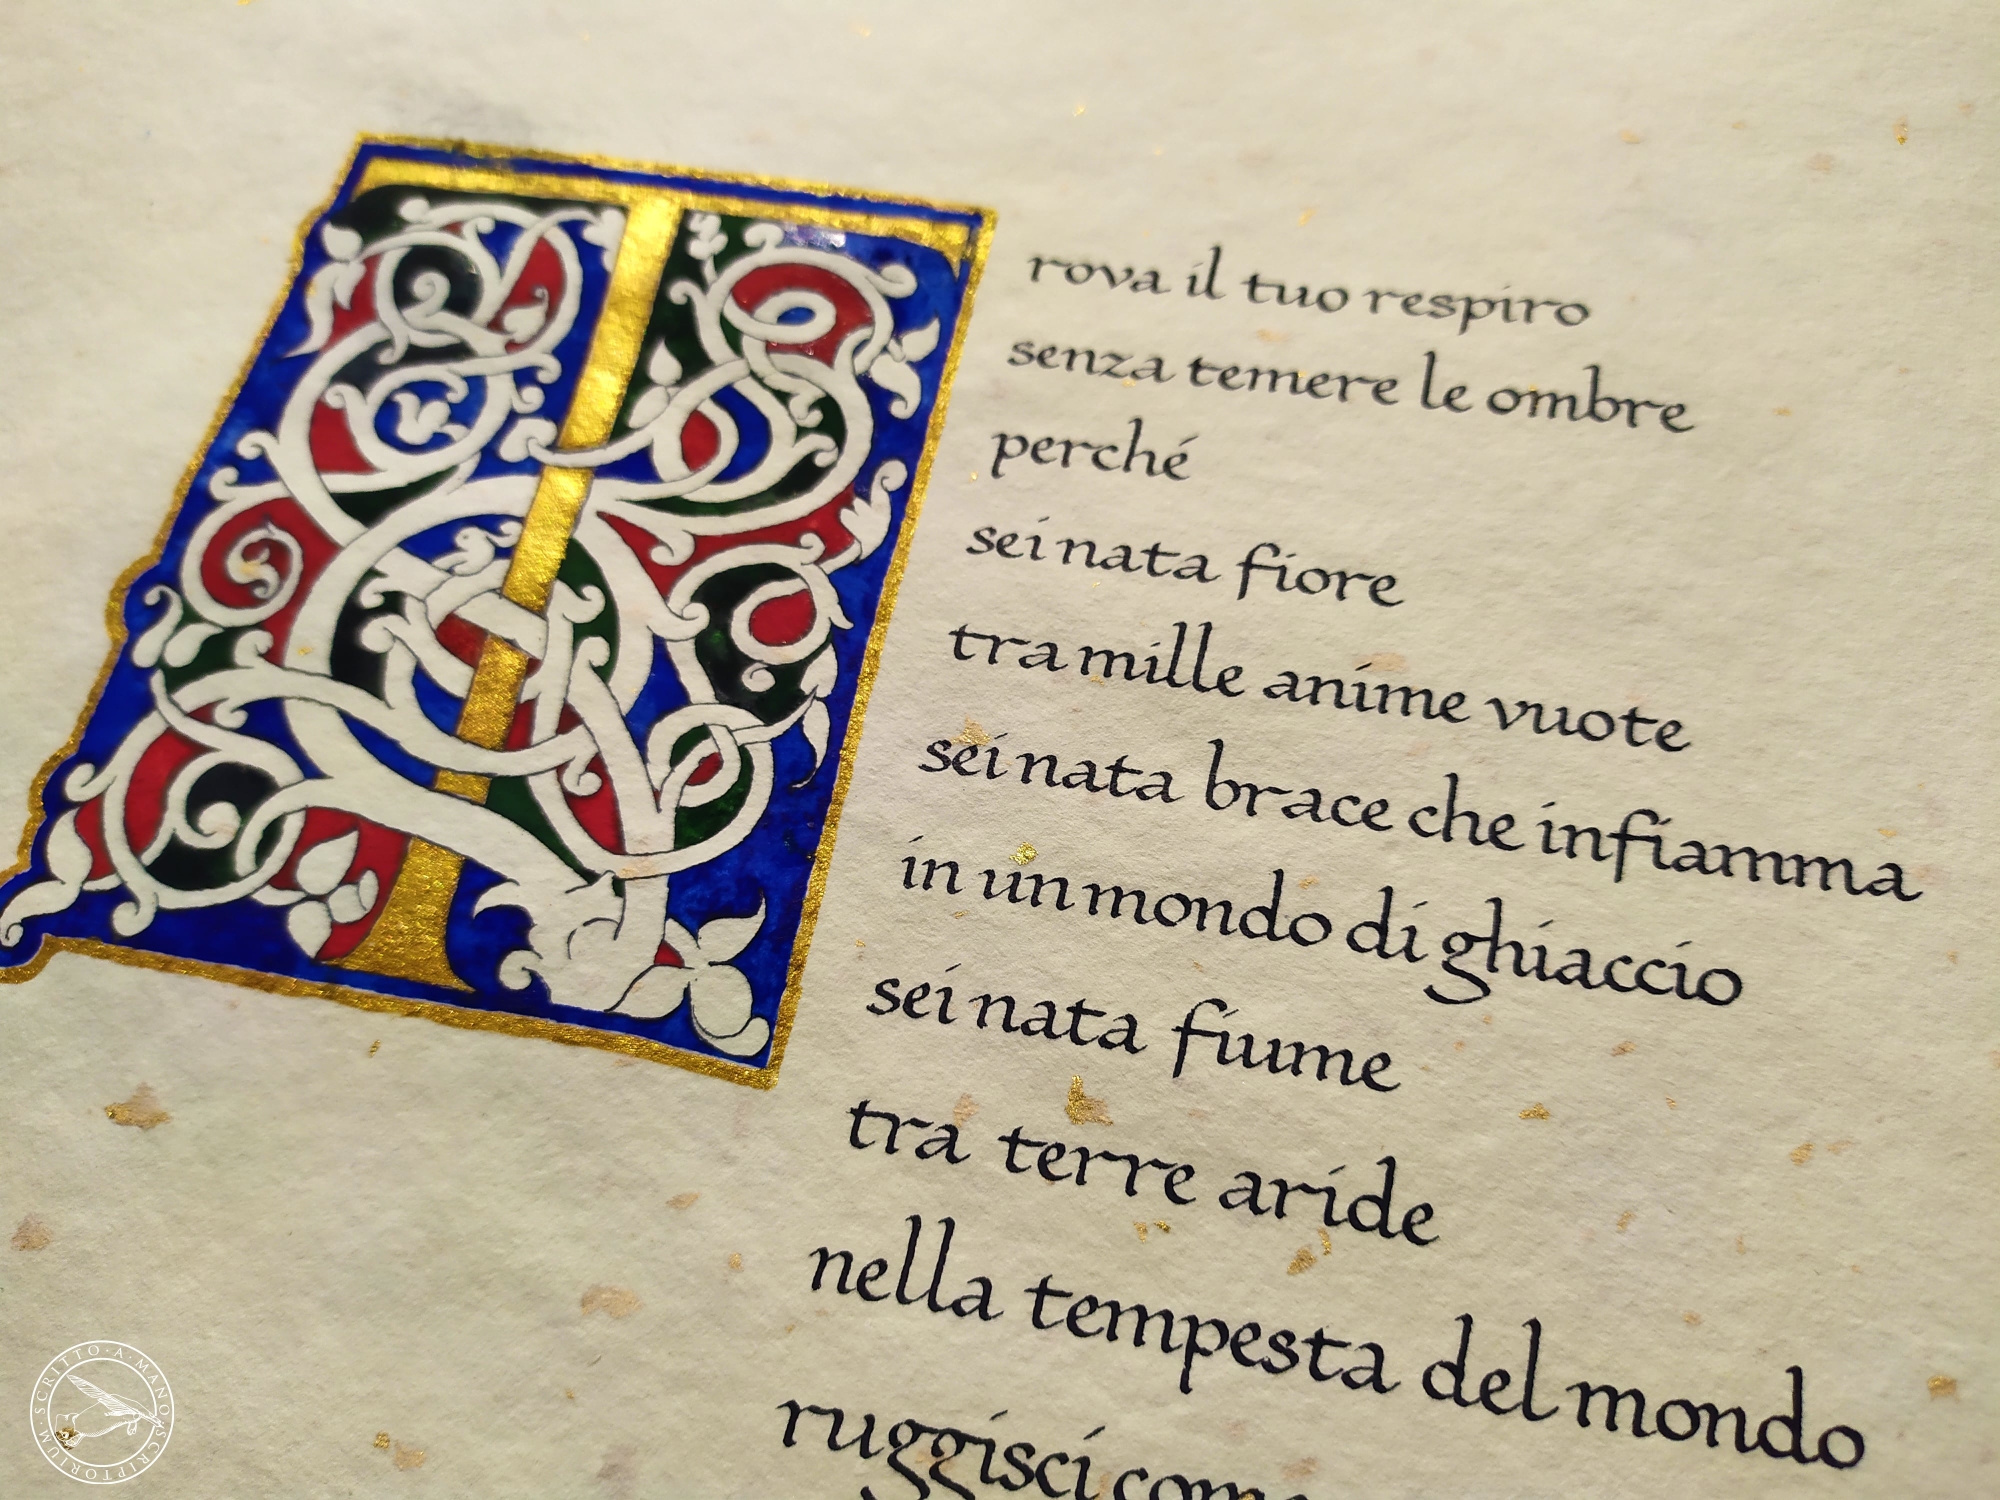 Trova il tuo respiro
senza temere le ombre
perché
sei nata fiore
tra mille anime vuote
sei nata brace che infiamma
in un mondo di ghiaccio
sei nata fiume
tra terre aride
nella tempesta del mondo
ruggisci come
SCRITTO·A·MANO·SCRIPTORIUM·